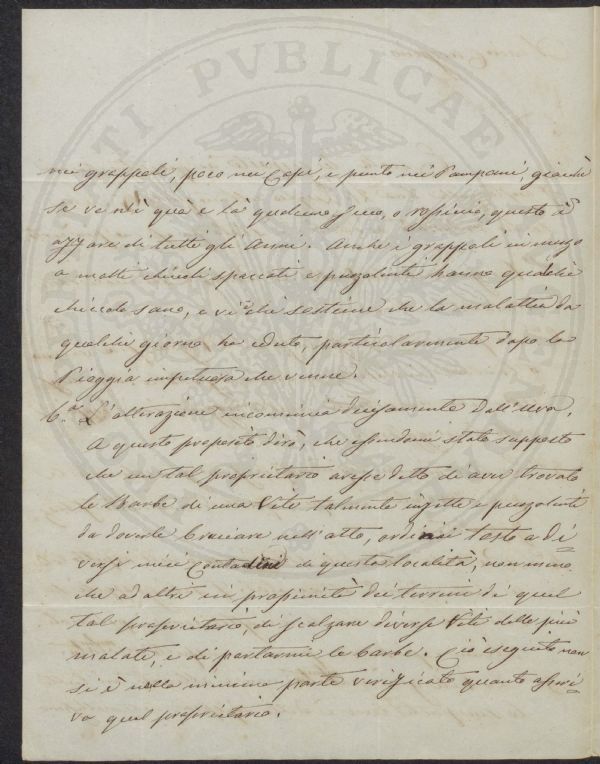 nei grappoli, poco nei Capi, e punto nei Pampani, giacchè
se ve n'è quà e là qualcuno secco, o rossiccio, questo è
azzare di tutti gli Anni. Anche i grappoli in mezzo
a molti chicchi spaccati e puzzolenti hanno qualche
chiccolo sano, e vi è chi sostiene che la malattia da
qualche giorno ha ceduto, particolarmente dopo la
Pioggia impetuosa che venne.
6.ª L'alterazione incomincia decisamente dall'Uva,
A questo proposito dirò, che essendomi stato supposto
che un tal proprietario avesse detto di aver trovato
le Barbe di una Vite talmente infette e puzzolenti
da doverle bruciare nell'atto, ordinai tosto a di
versi miei Contadini di questa località, non meno
che ad altri in prossimità dei terreni di quel
tal proprietario, di scalzare diverse Viti delle più
malate, e di portarmi le barbe. Ciò eseguito non
si è nella minima parte verificato quanto asseri
va quel proprietario.
PVBLICAE